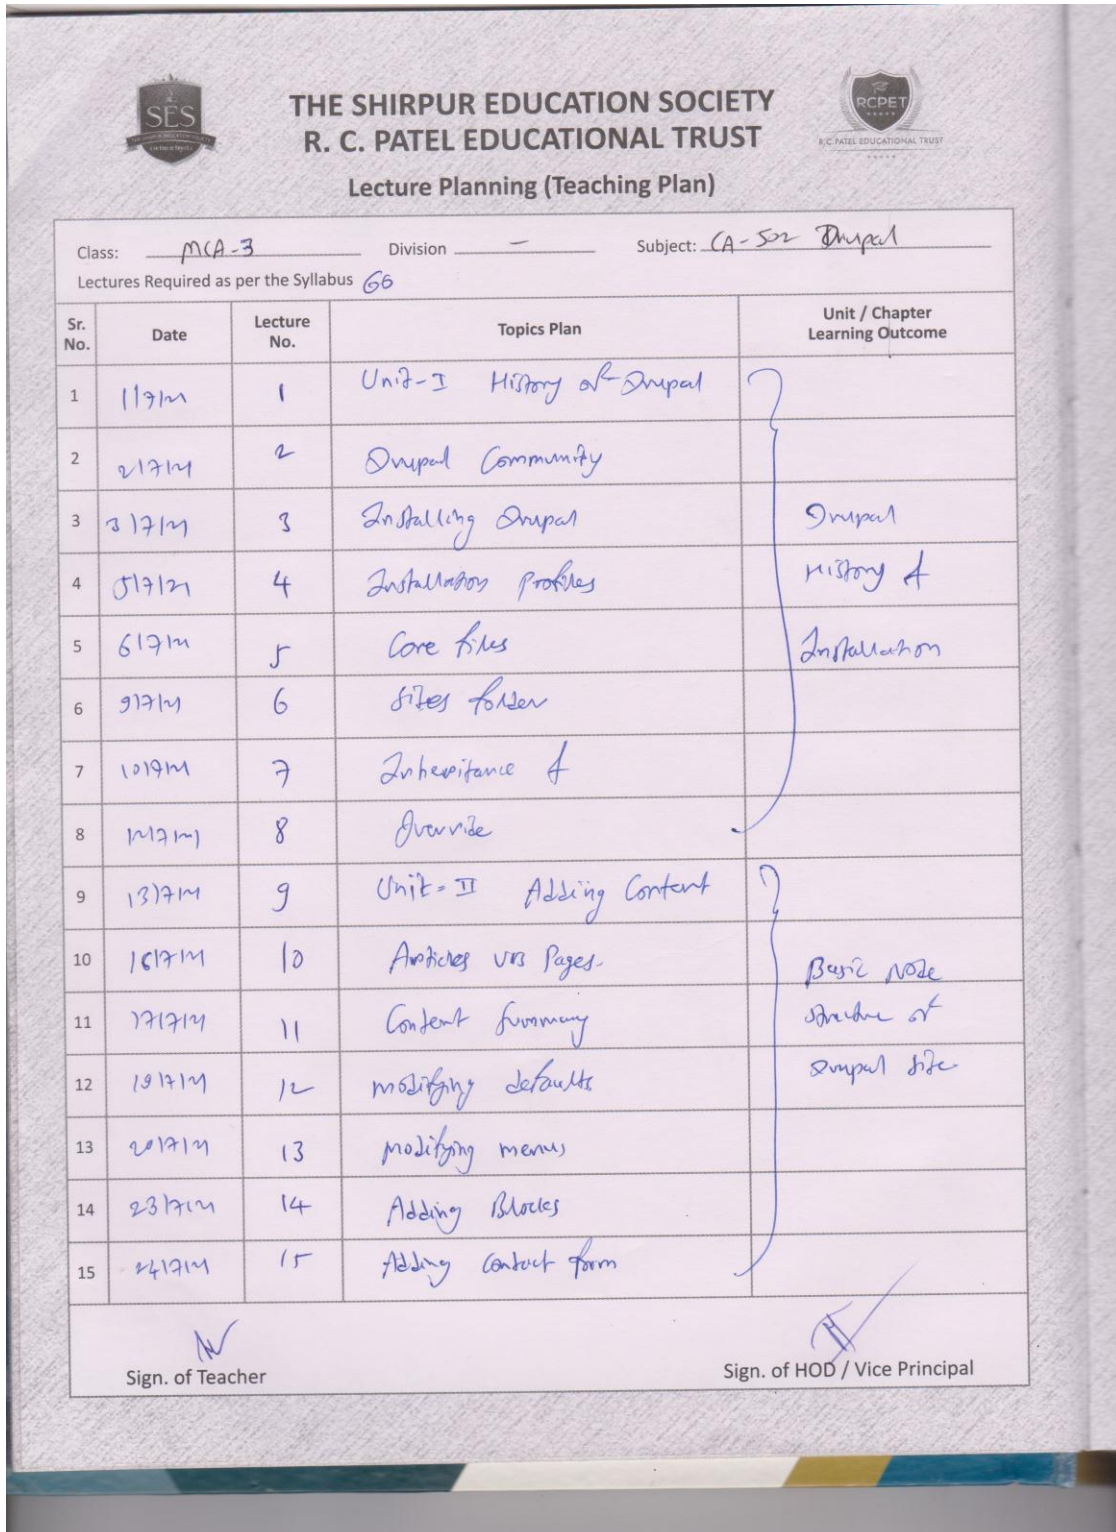 SES
THE SHIRPUR EDUCATION SOCIETY
R. C. PATEL EDUCATIONAL TRUST
RCPET
R.C.PATEL EDUCATIONAL TRUST
Lecture Planning (Teaching Plan)
Class: MCA-3 Division - Subject: CA-502 Drupal
Lectures Required as per the Syllabus 60
Sr. No. Date Lecture No. Topics Plan Unit / Chapter Learning Outcome
1 1/7/21 1 Unit-I History of Drupal
2 2/7/21 2 Drupal Community
3 3/7/21 3 Installing Drupal Drupal
4 5/7/21 4 Installation Profiles History &
5 6/7/21 5 Core files Installation
6 9/7/21 6 Sites folder
7 10/7/21 7 Inheritance &
8 12/7/21 8 Override
9 13/7/21 9 Unit-II Adding Content
10 16/7/21 10 Articles v/s Pages. Basic Node
11 17/7/21 11 Content Summary structure of
12 19/7/21 12 modifying defaults Drupal site.
13 20/7/21 13 modifying menus
14 23/7/21 14 Adding Blocks
15 24/7/21 15 Adding contact form
Sign. of Teacher Sign. of HOD / Vice Principal